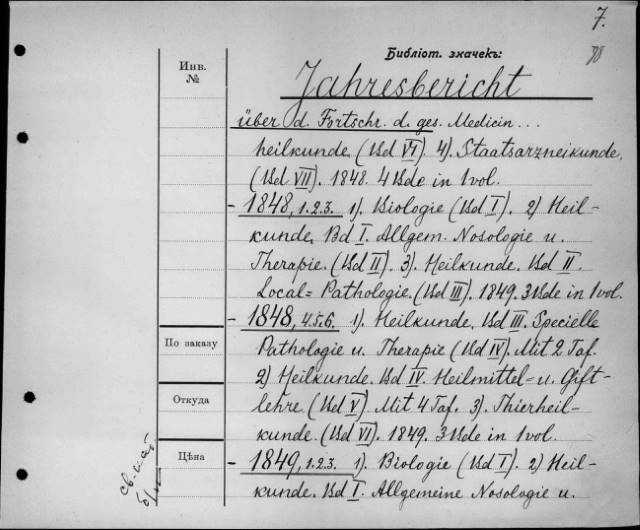 7.
Библіот. значекъ:
Инв.
№
Jahresbericht
über d. Fortschr. d. ges. Medicin...
heilkunde. (Bd VI). 4). Staatsarzneikunde.
(Bd VII). 1848. 4 Bde in 1 vol.
- 1848, 1.2.3. 1). Biologie (Bd I). 2) Heil-
kunde. Bd I. Allgem. Nosologie u.
Therapie. (Bd II). 3). Heilkunde. Bd II.
Local=Pathologie. (Bd III). 1849. 3 Bde in 1 vol.
- 1848, 4.5.6. 1). Heilkunde. Bd III. Specielle
По заказу
Pathologie u. Therapie (Bd IV). Mit 2 Taf.
2) Heilkunde. Bd IV. Heilmittel= u. Gift-
Откуда
lehre. (Bd V) Mit 4 Taf. 3). Thierheil-
kunde. (Bd VI). 1849. 3 Bde in 1 vol.
Цѣна
- 1849, 1.2.3. 1). Biologie (Bd I). 2) Heil-
kunde. Bd I. Allgemeine Nosologie u.